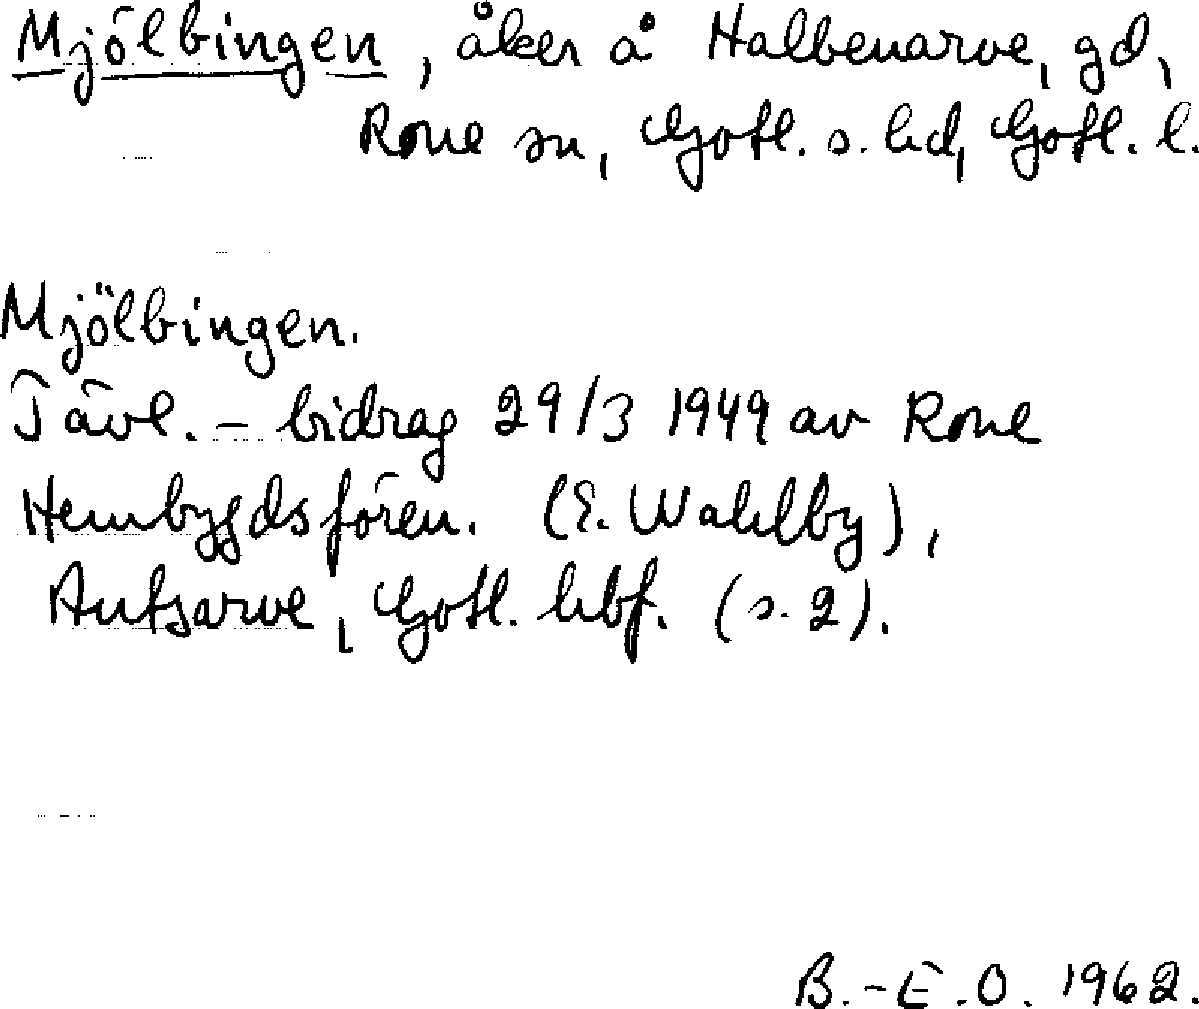 Mjölbingen, åker å Halbenarve, gd,
Rone sn, Gotl. s. hd, Gotl. l.
Mjölbingen.
Tävl.-bidrag 29/3 1949 av Rone
Hembygdsfören. (E. Wahlby),
Autsarve, Gotl. hbf. (s. 2).
B.-E.O. 1962.